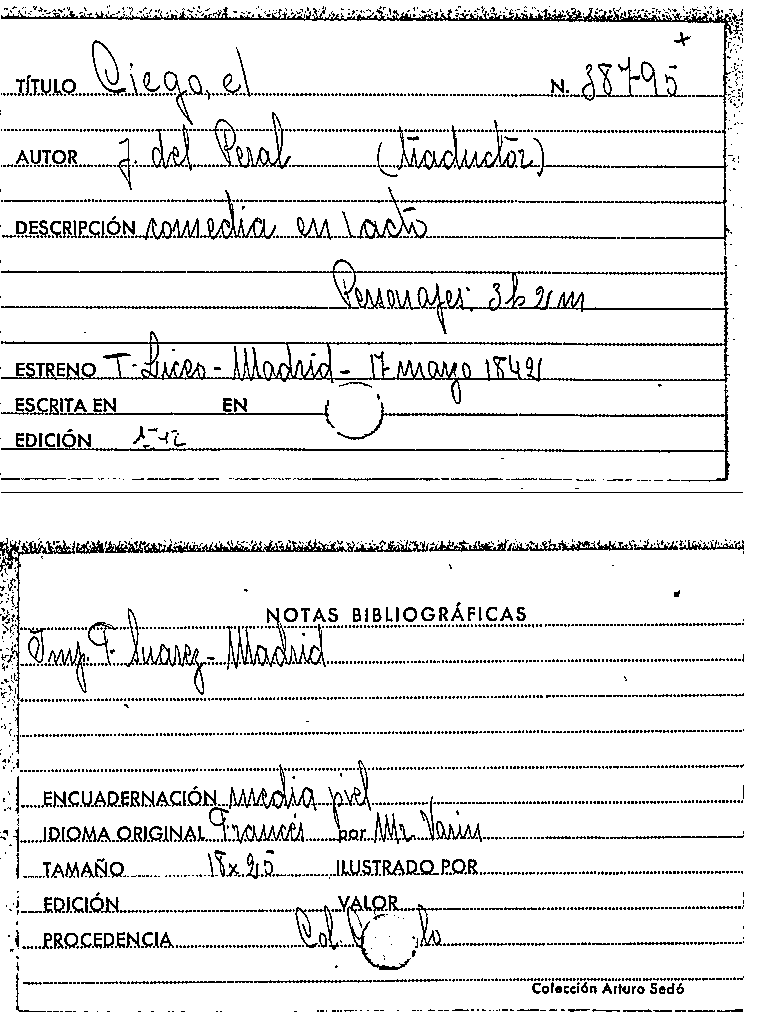 TÍTULO Ciego, el N. 38795
AUTOR J. del Peral (traductor)
DESCRIPCIÓN comedia en 1 acto
Personajes: 3h 2m
ESTRENO T. Liceo - Madrid - 17 mayo 1842
ESCRITA EN EN
EDICIÓN
NOTAS BIBLIOGRÁFICAS
Imp. F. Suarez - Madrid
ENCUADERNACIÓN media piel
IDIOMA ORIGINAL Francés por Mr. Varin
TAMAÑO 18x25 ILUSTRADO POR
EDICIÓN VALOR
PROCEDENCIA Col.
Colección Arturo Sedó